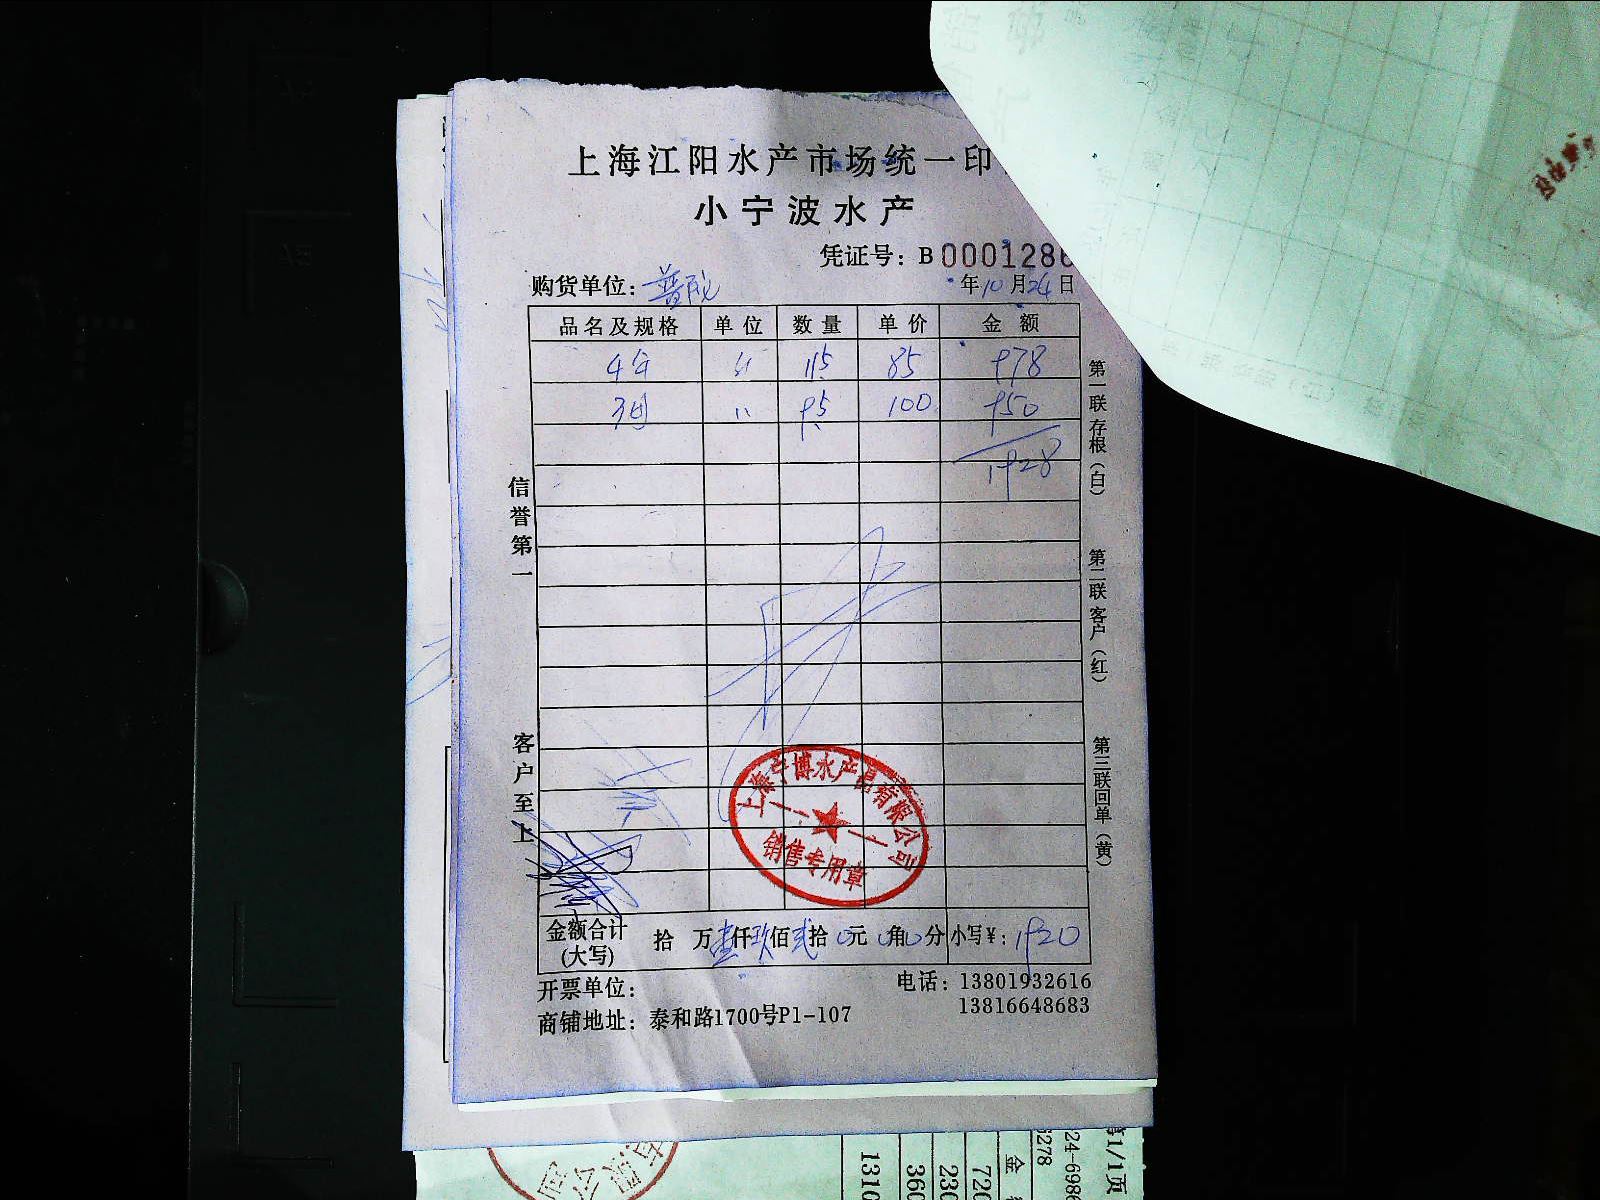 上海江阳水产市场统一印
小宁波水产
凭证号：B 0001286
购货单位：
年10月24日
品名及规格 单位 数量 单价 金额
115 85 978
3 〃 95 100 950
1928
信誉第一
客户至上
第一联存根（白）
第二联客户（红）
第三联回单（黄）
上海宁博水产品有限公司
销售专用章
金额合计(大写) 拾 万壹仟玖佰贰拾0元0角0分 小写¥：1920
开票单位：
电话：13801932616
13816648683
商铺地址：泰和路1700号P1-107
有限公司
1310
360
230
720
金
6278
第1/1页